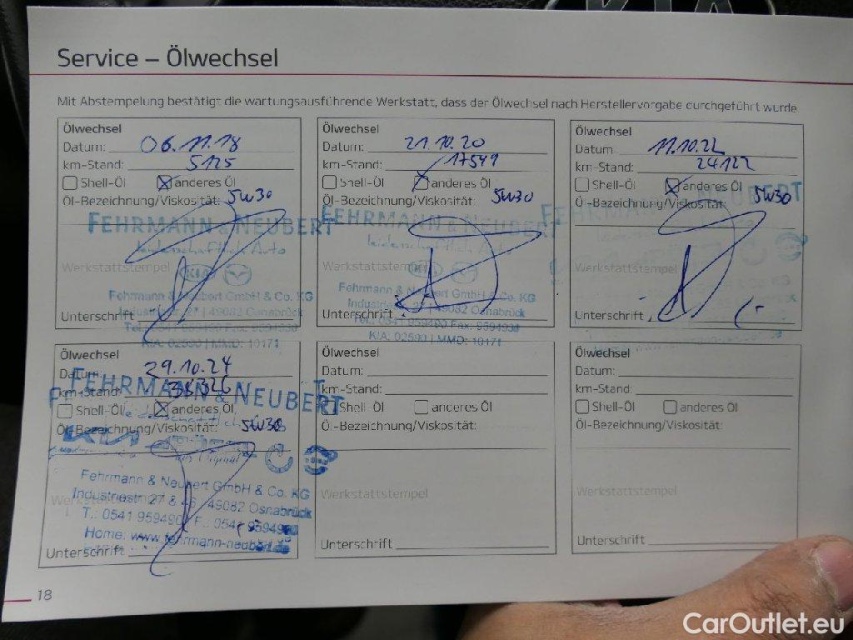 KIA
Service – Ölwechsel
Mit Abstempelung bestätigt die wartungsausführende Werkstatt, dass der Ölwechsel nach Herstellervorgabe durchgeführt wurde
Ölwechsel
Datum: 06.11.18
km-Stand: 5125
Shell-Öl anderes Öl
Öl-Bezeichnung/Viskosität: 5W30
FEHRMANN & NEUBERT
Werkstattstempel
Fehrmann & Neubert GmbH & Co. KG
49082 Osnabrück
KIA: 02500 | MMD: 10171
Unterschrift
Ölwechsel
Datum: 21.10.20
km-Stand: 17549
Shell-Öl anderes Öl
Öl-Bezeichnung/Viskosität: 5W30
FEHRMANN & NEUBERT
Werkstattstempel
Fehrmann & Neubert GmbH & Co. KG
49082 Osnabrück
KIA: 02500 | MMD: 10171
Unterschrift
Ölwechsel
Datum 11.10.22
km-Stand: 24122
Shell-Öl anderes Öl
Öl-Bezeichnung/Viskosität: 5W30
Werkstattstempel
Unterschrift
Ölwechsel
Datum: 29.10.24
km-Stand:
FEHRMANN & NEUBERT
Shell-Öl anderes Öl
Öl-Bezeichnung/Viskosität: 5W30
Fehrmann & Neubert GmbH & Co. KG
Industriestr. 27 & 49082 Osnabrück
Home: www.fehrmann-neubert.de
Unterschrift
Ölwechsel
Datum:
km-Stand:
Shell-Öl anderes Öl
Öl-Bezeichnung/Viskosität:
Werkstattstempel
Unterschrift
Ölwechsel
Datum:
km-Stand:
Shell-Öl anderes Öl
Öl-Bezeichnung/Viskosität:
Werkstattstempel
Unterschrift
18
CarOutlet.eu